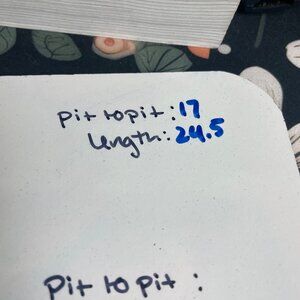 pit to pit : 17
length : 24.5
pit to pit :